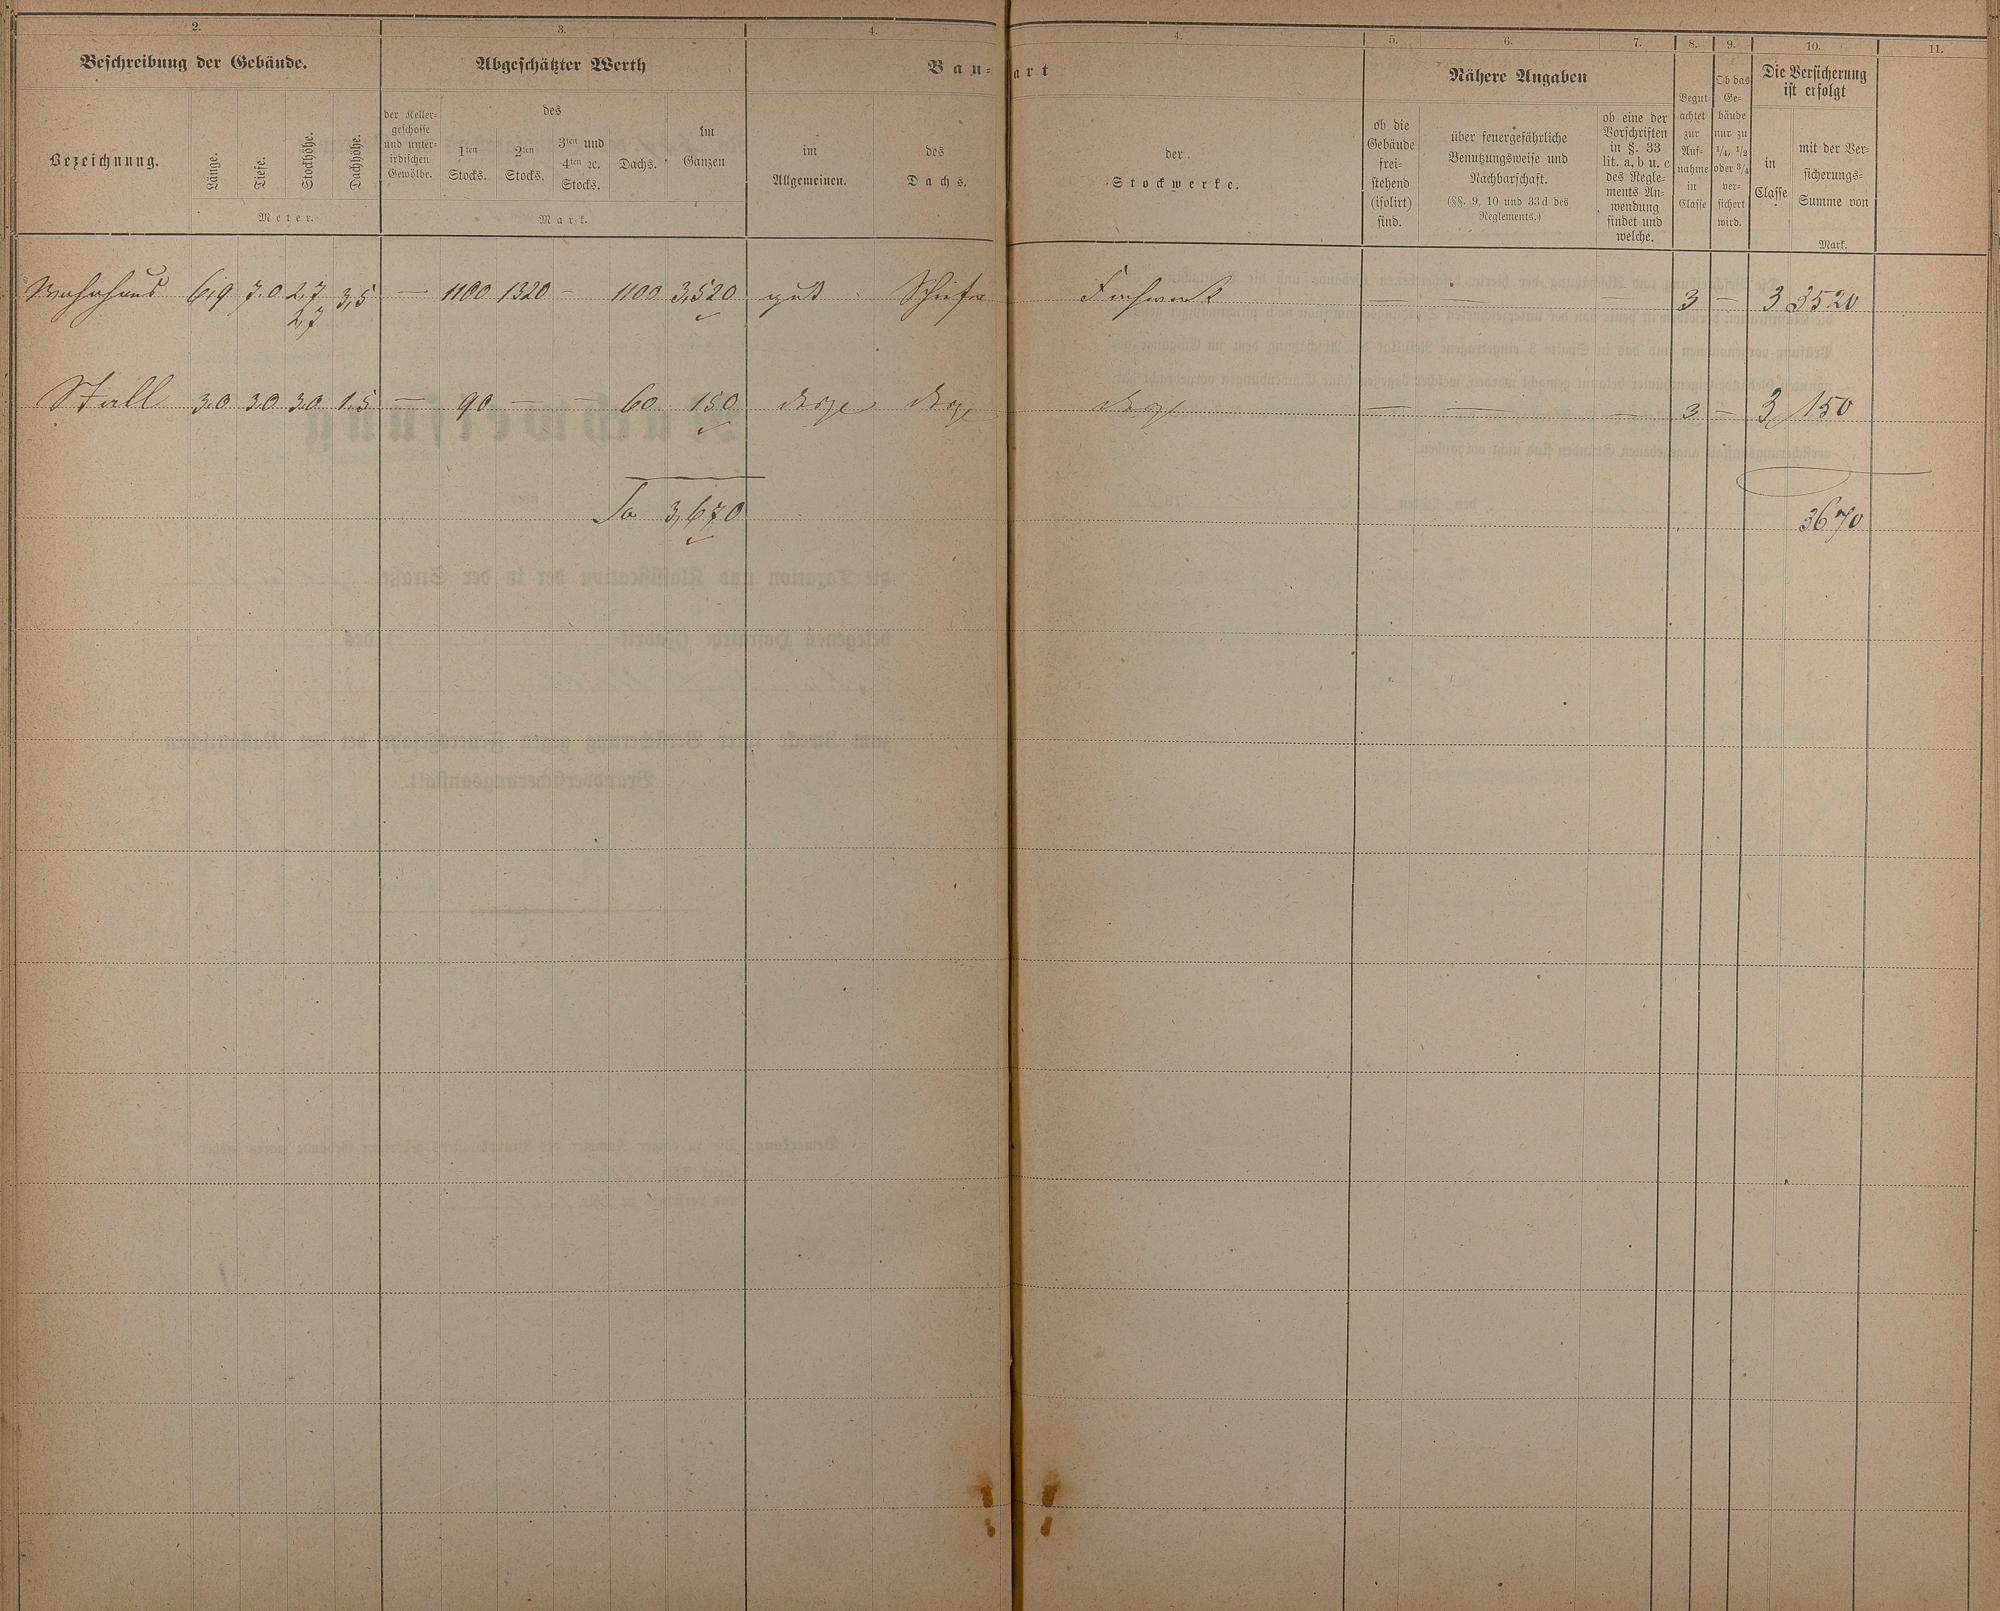 2. 3. 4. 4. 5. 6. 7. 8. 9. 10. 11.
Beschreibung der Gebäude.
Abgeschätzter Werth
Bau-art
Nähere Angaben
Begutachtet zur Aufnahme in Classe
Ob das Gebäude nur zu 1/4, 1/2 oder 3/4 versichert wird.
Die Versicherung ist erfolgt
Bezeichnung.
Länge.
Tiefe.
Stockhöhe.
Dachhöhe.
Meter.
der Kellergeschosse und unterirdischen Gewölbe.
des
1ten Stocks.
2ten Stocks.
3ten und 4ten ec. Stocks.
Dachs.
Im Ganzen
Mark.
im Allgemeinen.
des Dachs.
der Stockwerke.
ob die Gebäude freistehend (isolirt) sind.
über feuergefährliche Benutzungsweise und Nachbarschaft.
(§§. 9, 10 und 33d des Reglements.)
ob eine der Vorschriften in §. 33 lit. a, b u. c des Reglements Anwendung findet und welche.
in Classe
mit der Versicherungs-Summe von
Mark.
Wohnhaus 6,9 7.0 2,7 3,5 — 1100 1320 — 1100 3,520 gut Schiefer Fachwerk — — — 3 — 3 3520
2,7
Stall 3,0 3.0 3,0 1,5 — 90 — — 60 150 — — — 3 — 3 150
Sa 3,670 3670